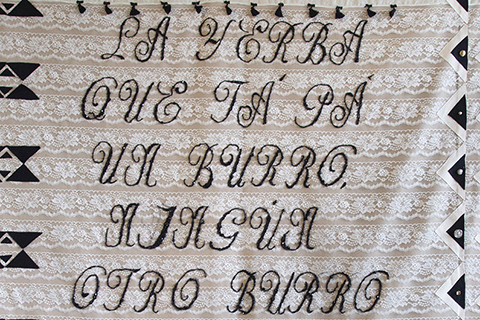 LA YERBA
QUE TÁ PÁ
UN BURRO,
NINGÚN
OTRO BURRO